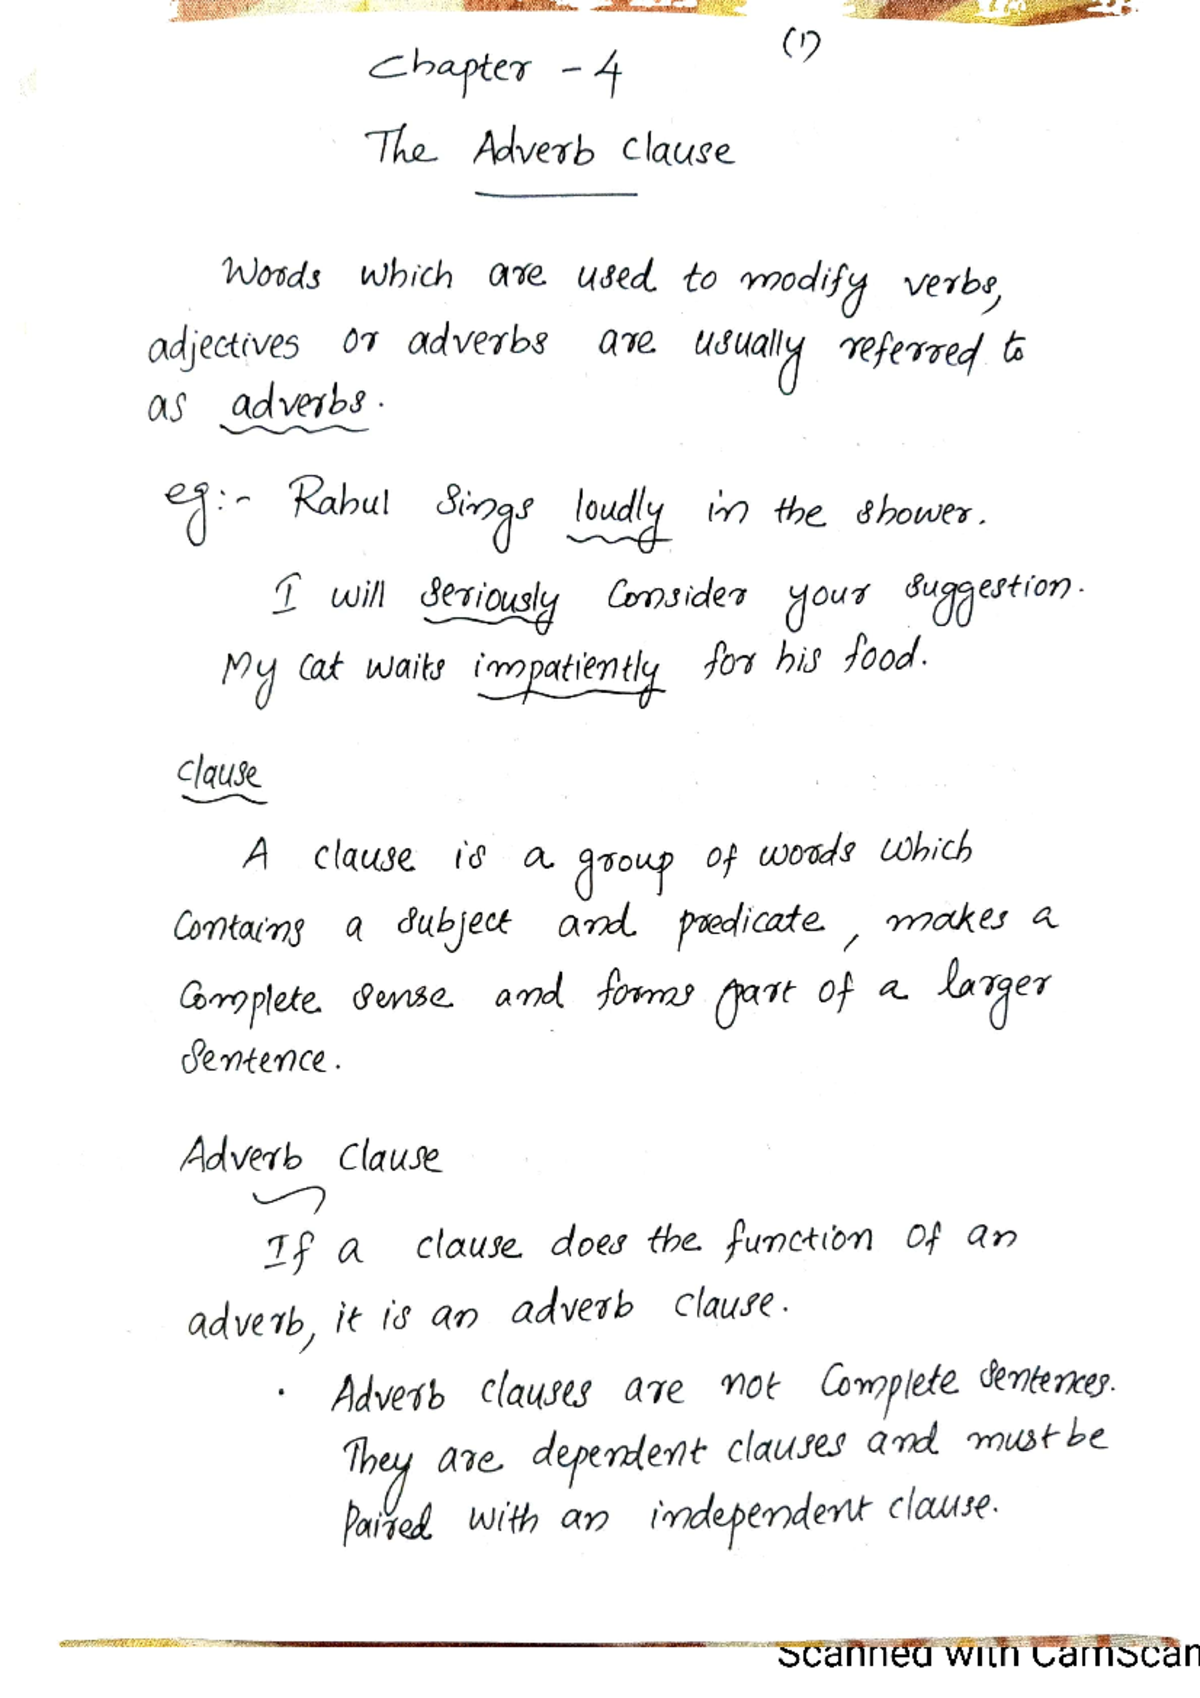 (1)
Chapter - 4
The Adverb Clause
Words which are used to modify verbs,
adjectives or adverbs are usually referred to
as adverbs.
eg:- Rahul Sings loudly in the shower.
I will seriously Consider your suggestion.
My cat waits impatiently for his food.
Clause
A clause is a group of words which
Contains a subject and predicate, makes a
Complete sense and forms part of a larger
sentence.
Adverb Clause
If a clause does the function of an
adverb, it is an adverb clause.
· Adverb clauses are not Complete sentences.
They are dependent clauses and must be
Paired with an independent clause.
Scanned with CamScan